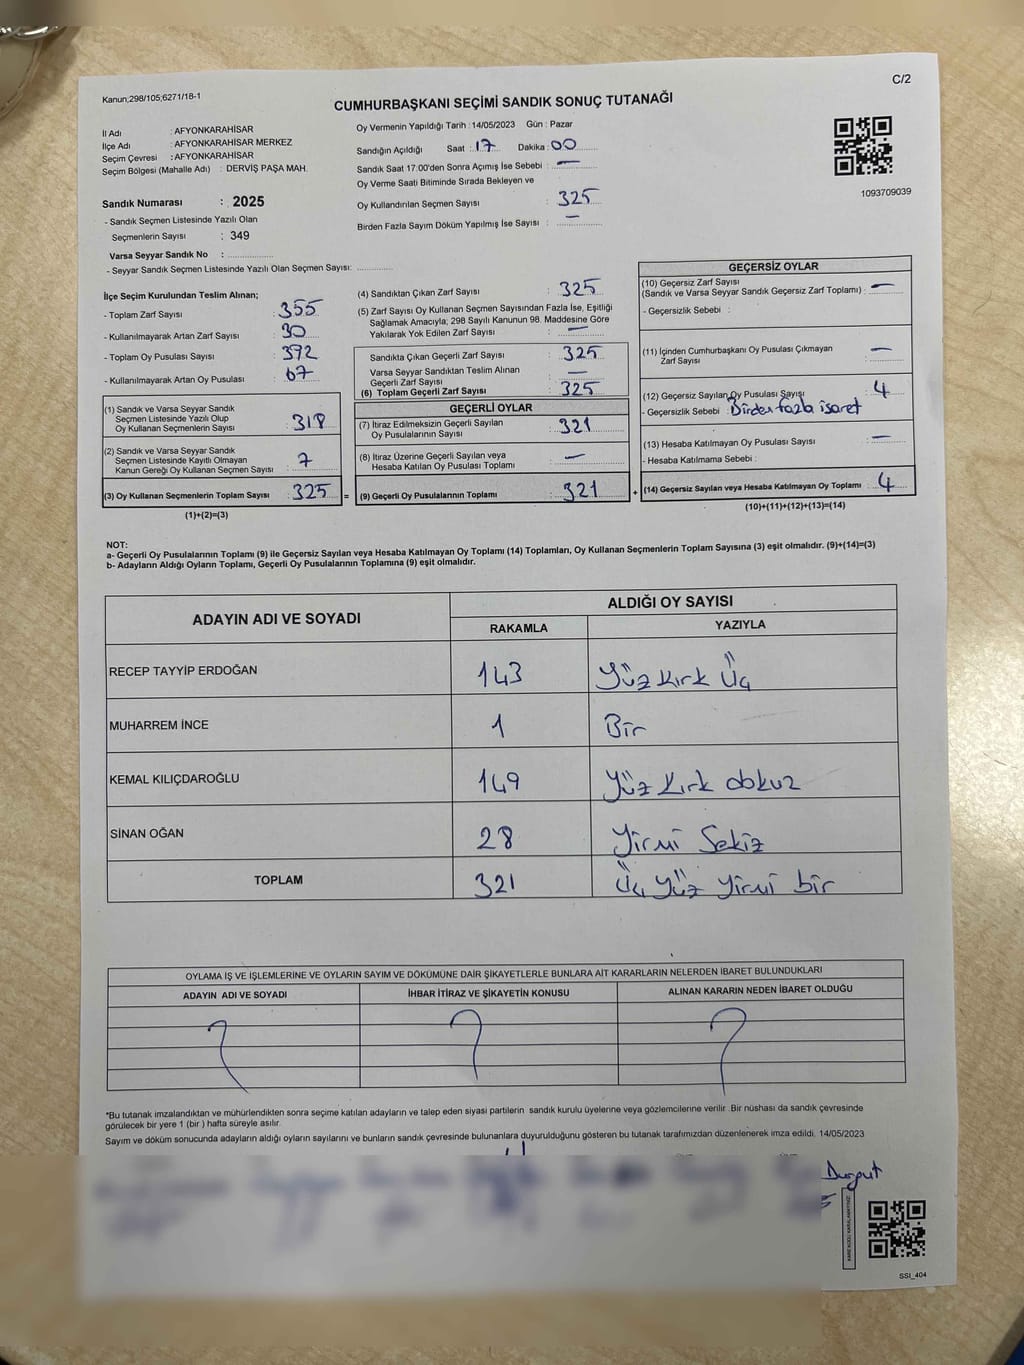 C/2
Kanun;298/105;6271/18-1
CUMHURBAŞKANI SEÇİMİ SANDIK SONUÇ TUTANAĞI
İl Adı : AFYONKARAHİSAR
İlçe Adı : AFYONKARAHİSAR MERKEZ
Seçim Çevresi : AFYONKARAHİSAR
Seçim Bölgesi (Mahalle Adı) : DERVİŞ PAŞA MAH.
Sandık Numarası : 2025
- Sandık Seçmen Listesinde Yazılı Olan
Seçmenlerin Sayısı : 349
Varsa Seyyar Sandık No : ....................
- Seyyar Sandık Seçmen Listesinde Yazılı Olan Seçmen Sayısı: ..............
Oy Vermenin Yapıldığı Tarih : 14/05/2023 Gün : Pazar
Sandığın Açıldığı Saat : 17 Dakika : 00
Sandık Saat 17:00'den Sonra Açımış İse Sebebi : —
Oy Verme Saati Bitiminde Sırada Bekleyen ve
Oy Kullandırılan Seçmen Sayısı : 325
Birden Fazla Sayım Döküm Yapılmış İse Sayısı : —
1093709039
İlçe Seçim Kurulundan Teslim Alınan;
- Toplam Zarf Sayısı : 355
- Kullanılmayarak Artan Zarf Sayısı : 30
- Toplam Oy Pusulası Sayısı : 392
- Kullanılmayarak Artan Oy Pusulası : 67
(1) Sandık ve Varsa Seyyar Sandık
Seçmen Listesinde Yazılı Olup
Oy Kullanan Seçmenlerin Sayısı : 318
(2) Sandık ve Varsa Seyyar Sandık
Seçmen Listesinde Kayıtlı Olmayan
Kanun Gereği Oy Kullanan Seçmen Sayısı : 7
(3) Oy Kullanan Seçmenlerin Toplam Sayısı : 325 =
(1)+(2)=(3)
(4) Sandıktan Çıkan Zarf Sayısı : 325
(5) Zarf Sayısı Oy Kullanan Seçmen Sayısından Fazla İse, Eşitliği
Sağlamak Amacıyla; 298 Sayılı Kanunun 98. Maddesine Göre
Yakılarak Yok Edilen Zarf Sayısı : —
Sandıkta Çıkan Geçerli Zarf Sayısı : 325
Varsa Seyyar Sandıktan Teslim Alınan
Geçerli Zarf Sayısı : —
(6) Toplam Geçerli Zarf Sayısı : 325
GEÇERLİ OYLAR
(7) İtiraz Edilmeksizin Geçerli Sayılan
Oy Pusulalarının Sayısı : 321
(8) İtiraz Üzerine Geçerli Sayılan veya
Hesaba Katılan Oy Pusulası Toplamı : —
(9) Geçerli Oy Pusulalarının Toplamı : 321 +
GEÇERSİZ OYLAR
(10) Geçersiz Zarf Sayısı
(Sandık ve Varsa Seyyar Sandık Geçersiz Zarf Toplamı) : —
- Geçersizlik Sebebi :
(11) İçinden Cumhurbaşkanı Oy Pusulası Çıkmayan
Zarf Sayısı : —
(12) Geçersiz Sayılan Oy Pusulası Sayısı : 4
- Geçersizlik Sebebi : Birden fazla işaret
(13) Hesaba Katılmayan Oy Pusulası Sayısı : —
- Hesaba Katılmama Sebebi :
(14) Geçersiz Sayılan veya Hesaba Katılmayan Oy Toplamı : 4
(10)+(11)+(12)+(13)=(14)
NOT:
a- Geçerli Oy Pusulalarının Toplamı (9) ile Geçersiz Sayılan veya Hesaba Katılmayan Oy Toplamı (14) Toplamları, Oy Kullanan Seçmenlerin Toplam Sayısına (3) eşit olmalıdır. (9)+(14)=(3)
b- Adayların Aldığı Oyların Toplamı, Geçerli Oy Pusulalarının Toplamına (9) eşit olmalıdır.
ADAYIN ADI VE SOYADI ALDIĞI OY SAYISI
RAKAMLA YAZIYLA
RECEP TAYYİP ERDOĞAN 143 Yüz Kırk Üç
MUHARREM İNCE 1 Bir
KEMAL KILIÇDAROĞLU 149 Yüz Kırk dokuz
SİNAN OĞAN 28 Yirmi Sekiz
TOPLAM 321 Üç Yüz Yirmi bir
OYLAMA İŞ VE İŞLEMLERİNE VE OYLARIN SAYIM VE DÖKÜMÜNE DAİR ŞİKAYETLERLE BUNLARA AİT KARARLARIN NELERDEN İBARET BULUNDUKLARI
ADAYIN ADI VE SOYADI İHBAR İTİRAZ VE ŞİKAYETİN KONUSU ALINAN KARARIN NEDEN İBARET OLDUĞU
*Bu tutanak imzalandıktan ve mühürlendikten sonra seçime katılan adayların ve talep eden siyasi partilerin sandık kurulu üyelerine veya gözlemcilerine verilir. Bir nüshası da sandık çevresinde
görülecek bir yere 1 (bir ) hafta süreyle asılır.
Sayım ve döküm sonucunda adayların aldığı oyların sayılarını ve bunların sandık çevresinde bulunanlara duyurulduğunu gösteren bu tutanak tarafımızdan düzenlenerek imza edildi. 14/05/2023
Durgut
KARE KODU KARALAMAYINIZ!
SSI_404